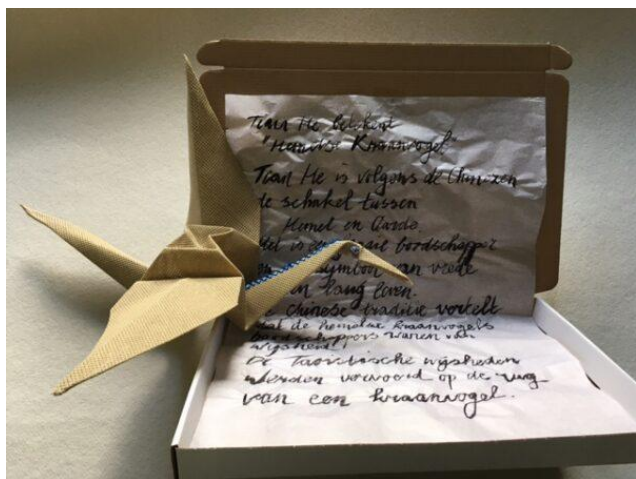 Tian He betekent
'Hemelse Kraanvogel'
Tian He is volgens de Chinezen
de schakel tussen
Hemel en Aarde.
Het is een boodschapper
symbool van vrede
en lang leven.
Chinese traditie vertelt
dat de hemelse kraanvogels
boodschappers waren van
wijsheid.
De Taoistische wijsheden
werden vervoerd op de rug
van een kraanvogel.